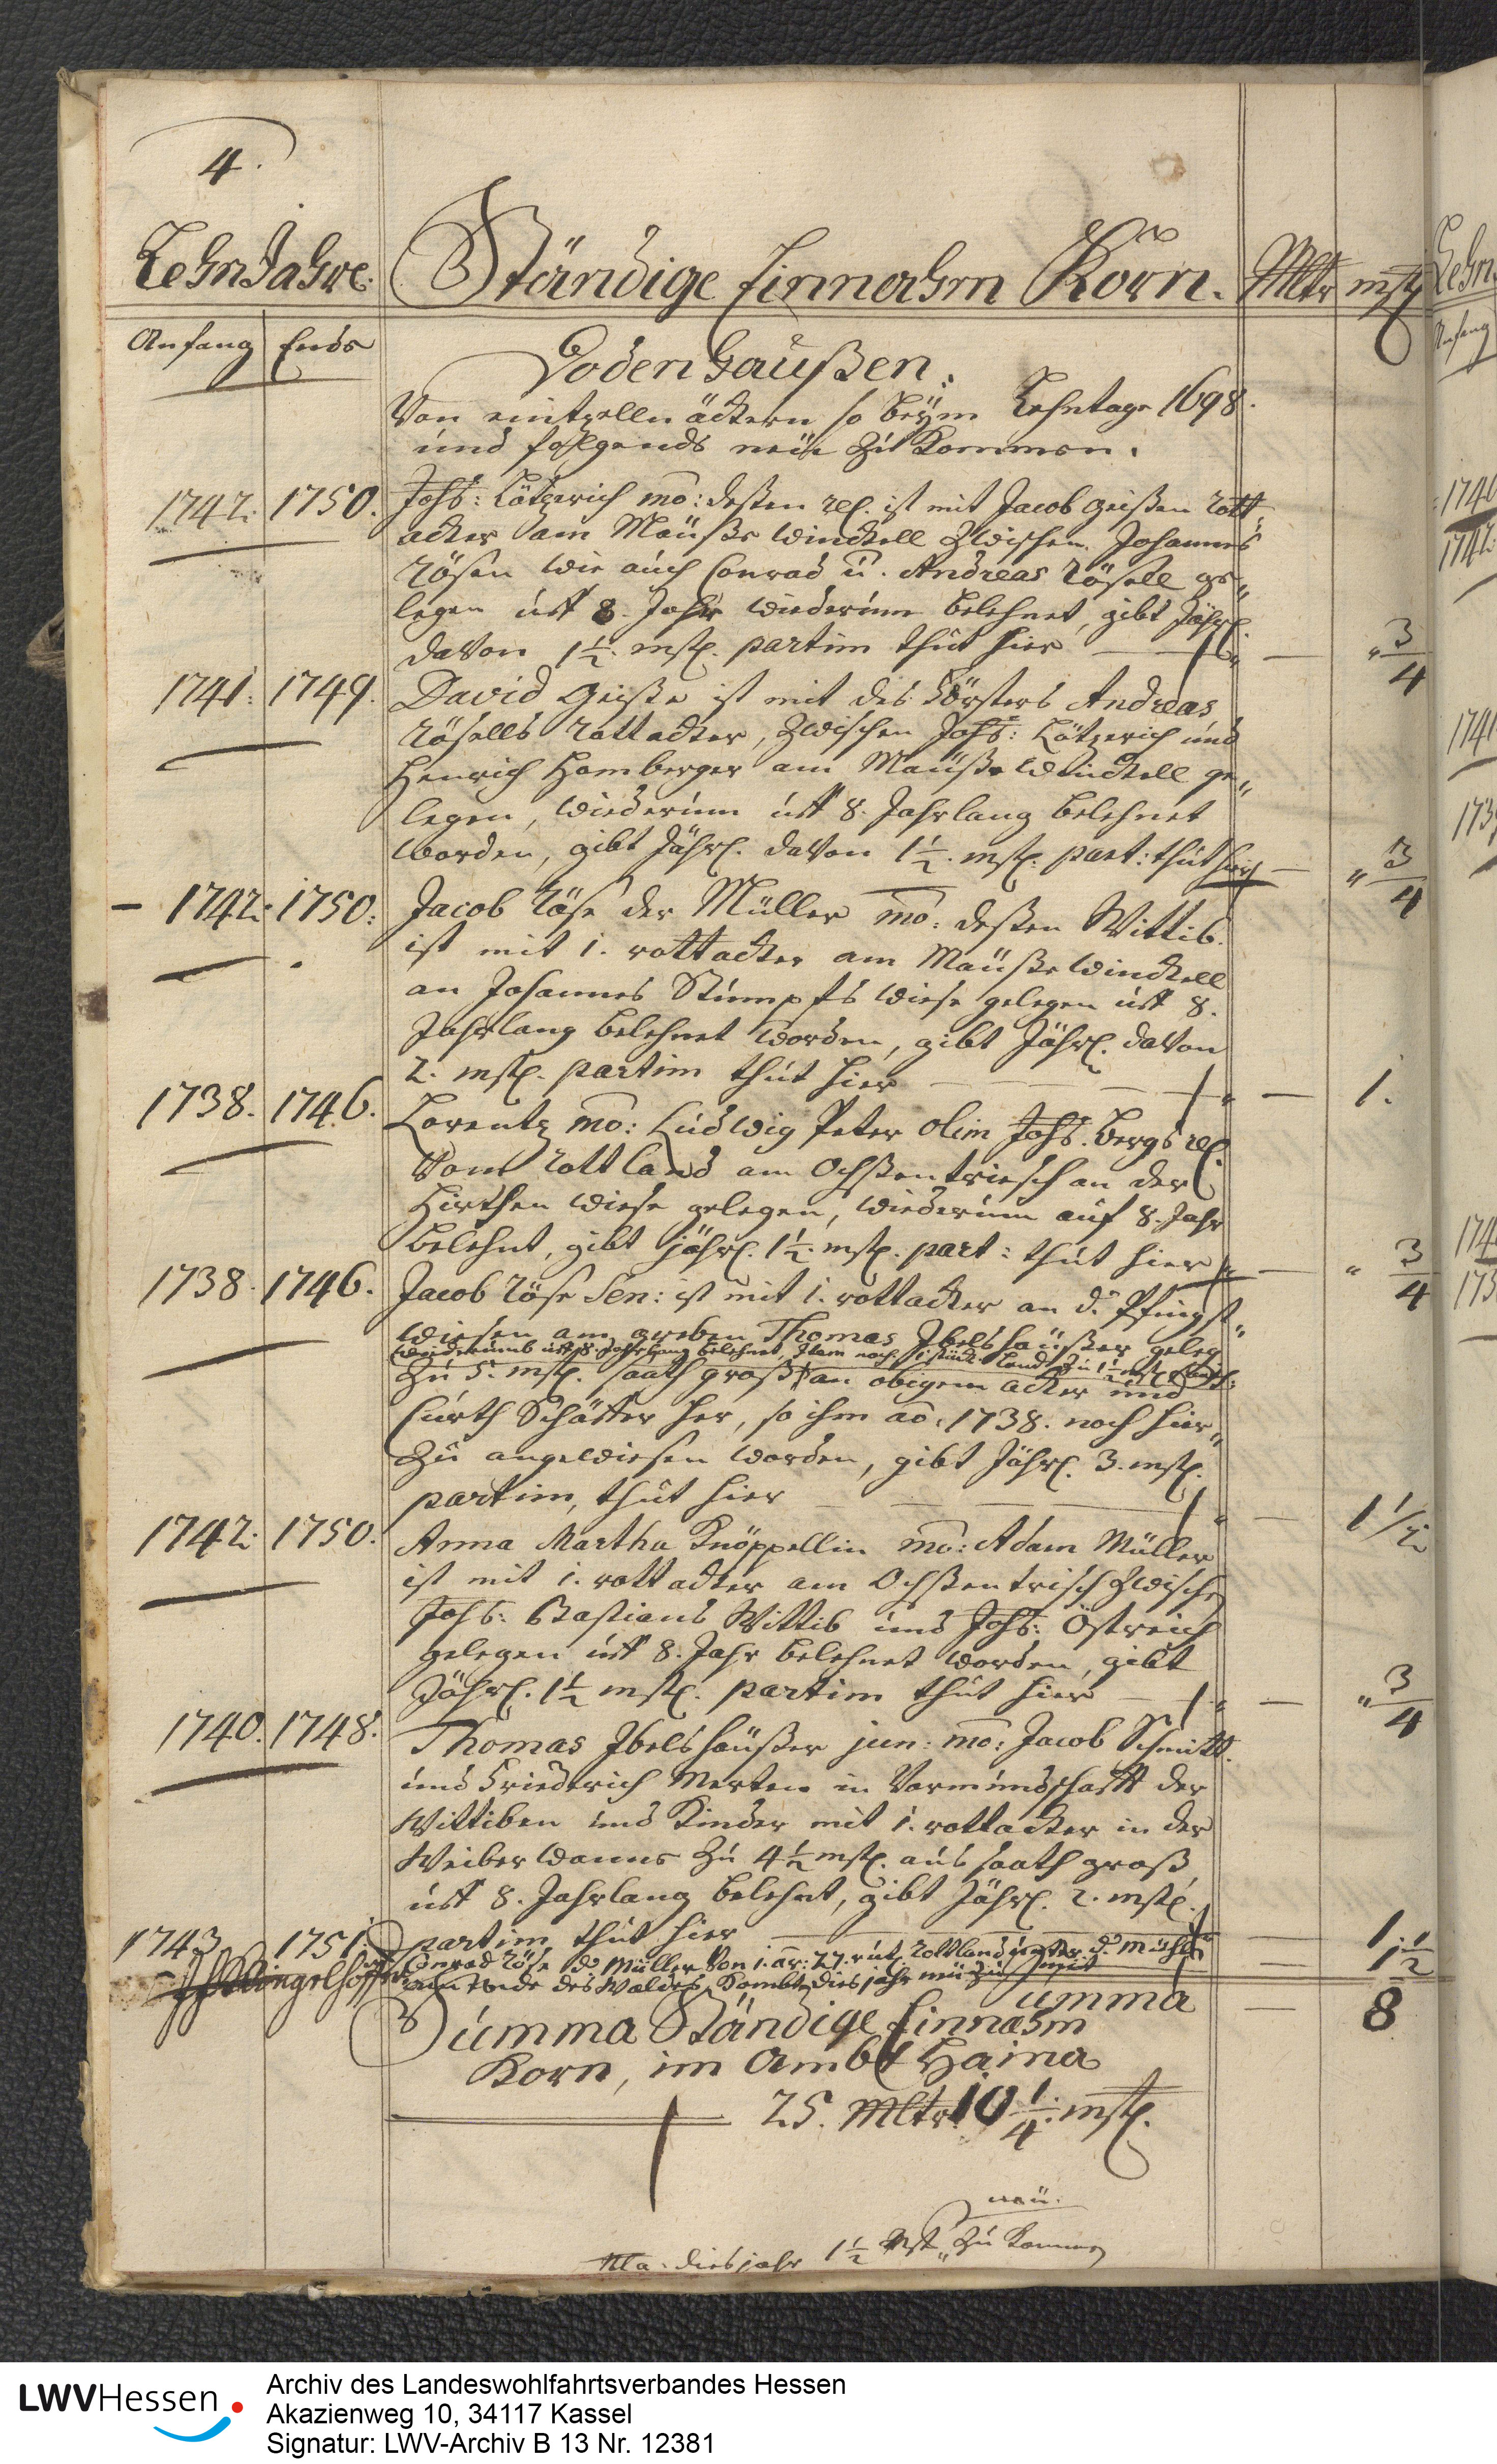 4.
LehnJahre. Ständige Einnahm Korn. Mltr mst
Anfang Ende
Dodenhaußen.
Von eintzelln äckern so beÿm Lehntage 1698.
und folgends neü zu Kommen.
1742. 1750. Johs: Lötzerich mo: deßen rel. ist mit Jacob Geißen rott
acker am Maüße Winckell Zwischen Johannes
Rösen wie auch Conrad u. Andreas Rösell ge„
legen uff 8. Jahr wiederum belehnet, gibt Jährl.
davon 1 1/2. mst. partim thut hier — „ 3/4
1741. 1749. David Geiße ist mit des Försters Andreas
Rösells Rottacker, Zwischen Johs: Lötzerich und
Henrich Homberger am Maüße Winckell ge„
legen, wiederum uff 8. Jahrlang belehnet
worden, gibt Jährl. davon 1 1/2. mst. part: thut hier — „ 3/4
1742. 1750. Jacob Röse der Müller mo: deßen Wittib.
ist mit 1. rottacker am Maüße Winckell
an Johannes Stumpfs Wiese gelegen uff 8.
Jahrlang belehnet worden, gibt Jährl. davon
2. mst. partim thut hier — 1.
1738. 1746. Lorentz mo: Ludwig Peter olim Johs. Bergs rel.
Vom Rottland am Ochßentriesch an der
Hirthen Wiese gelegen, wiederum auf 8. Jahr
belehnt, gibt jährl. 1 1/2. mst. part: thut hier — „ 3/4
1738. 1746. Jacob Röse Sen: ist mit 1. rottacker an d. Pfingst„
wiesen am graben Thomas Ibelshäußer geleg
wiederumb uff 8. Jahrlang belehnet, Item noch 1. stück Land zu 1 1/2 mst.
Zu 5. mst. saath groß an obigem acker und
Curth Schäffer her, so ihm ao. 1738. noch hier„
Zu angewiesen worden, gibt Jährl. 3. mst.
partim, thut hier — 1 1/2
1742. 1750. Anna Martha Knöppellin mo: Adam Müller
ist mit 1. rottacker am Ochßentrisch Zwischen
Johs: Bastians Wittib und Johs: Östreich
gelegen uff 8. Jahr belehnet worden, gibt
Jährl. 1 1/2 mst. partim thut hier — „ 3/4
1740. 1748. Thomas Ibelshäußer jun: mo: Jacob Schmitt
und Friedrich Merten in Vormundschafft der
Wittiben und Kinder mit 1. rottacker in der
Weiber Wanne Zu 4 1/2 mst. aus saath groß
uff 8. Jahrlang belehnt, gibt Jährl. 2. mst.
partim thut hier — 1.
1743 1751. Conrad Röse d. Müller Von 1. ar: 27. rut. Rottland unter d. Mühl 1 1/2
am Ende des Waldes, Kombt dies jahr neü zu
umma — 8
Summa Ständige Einnahm
Korn, im Ambt Haina
25. Mltr. 10 1/4. mst.
neü.
Na: dies jahr 1 1/2 Mst. Zu Kommen
Lehn
Anfang
1740
1742
1741
173
174
173
LWVHessen
Archiv des Landeswohlfahrtsverbandes Hessen
Akazienweg 10, 34117 Kassel
Signatur: LWV-Archiv B 13 Nr. 12381